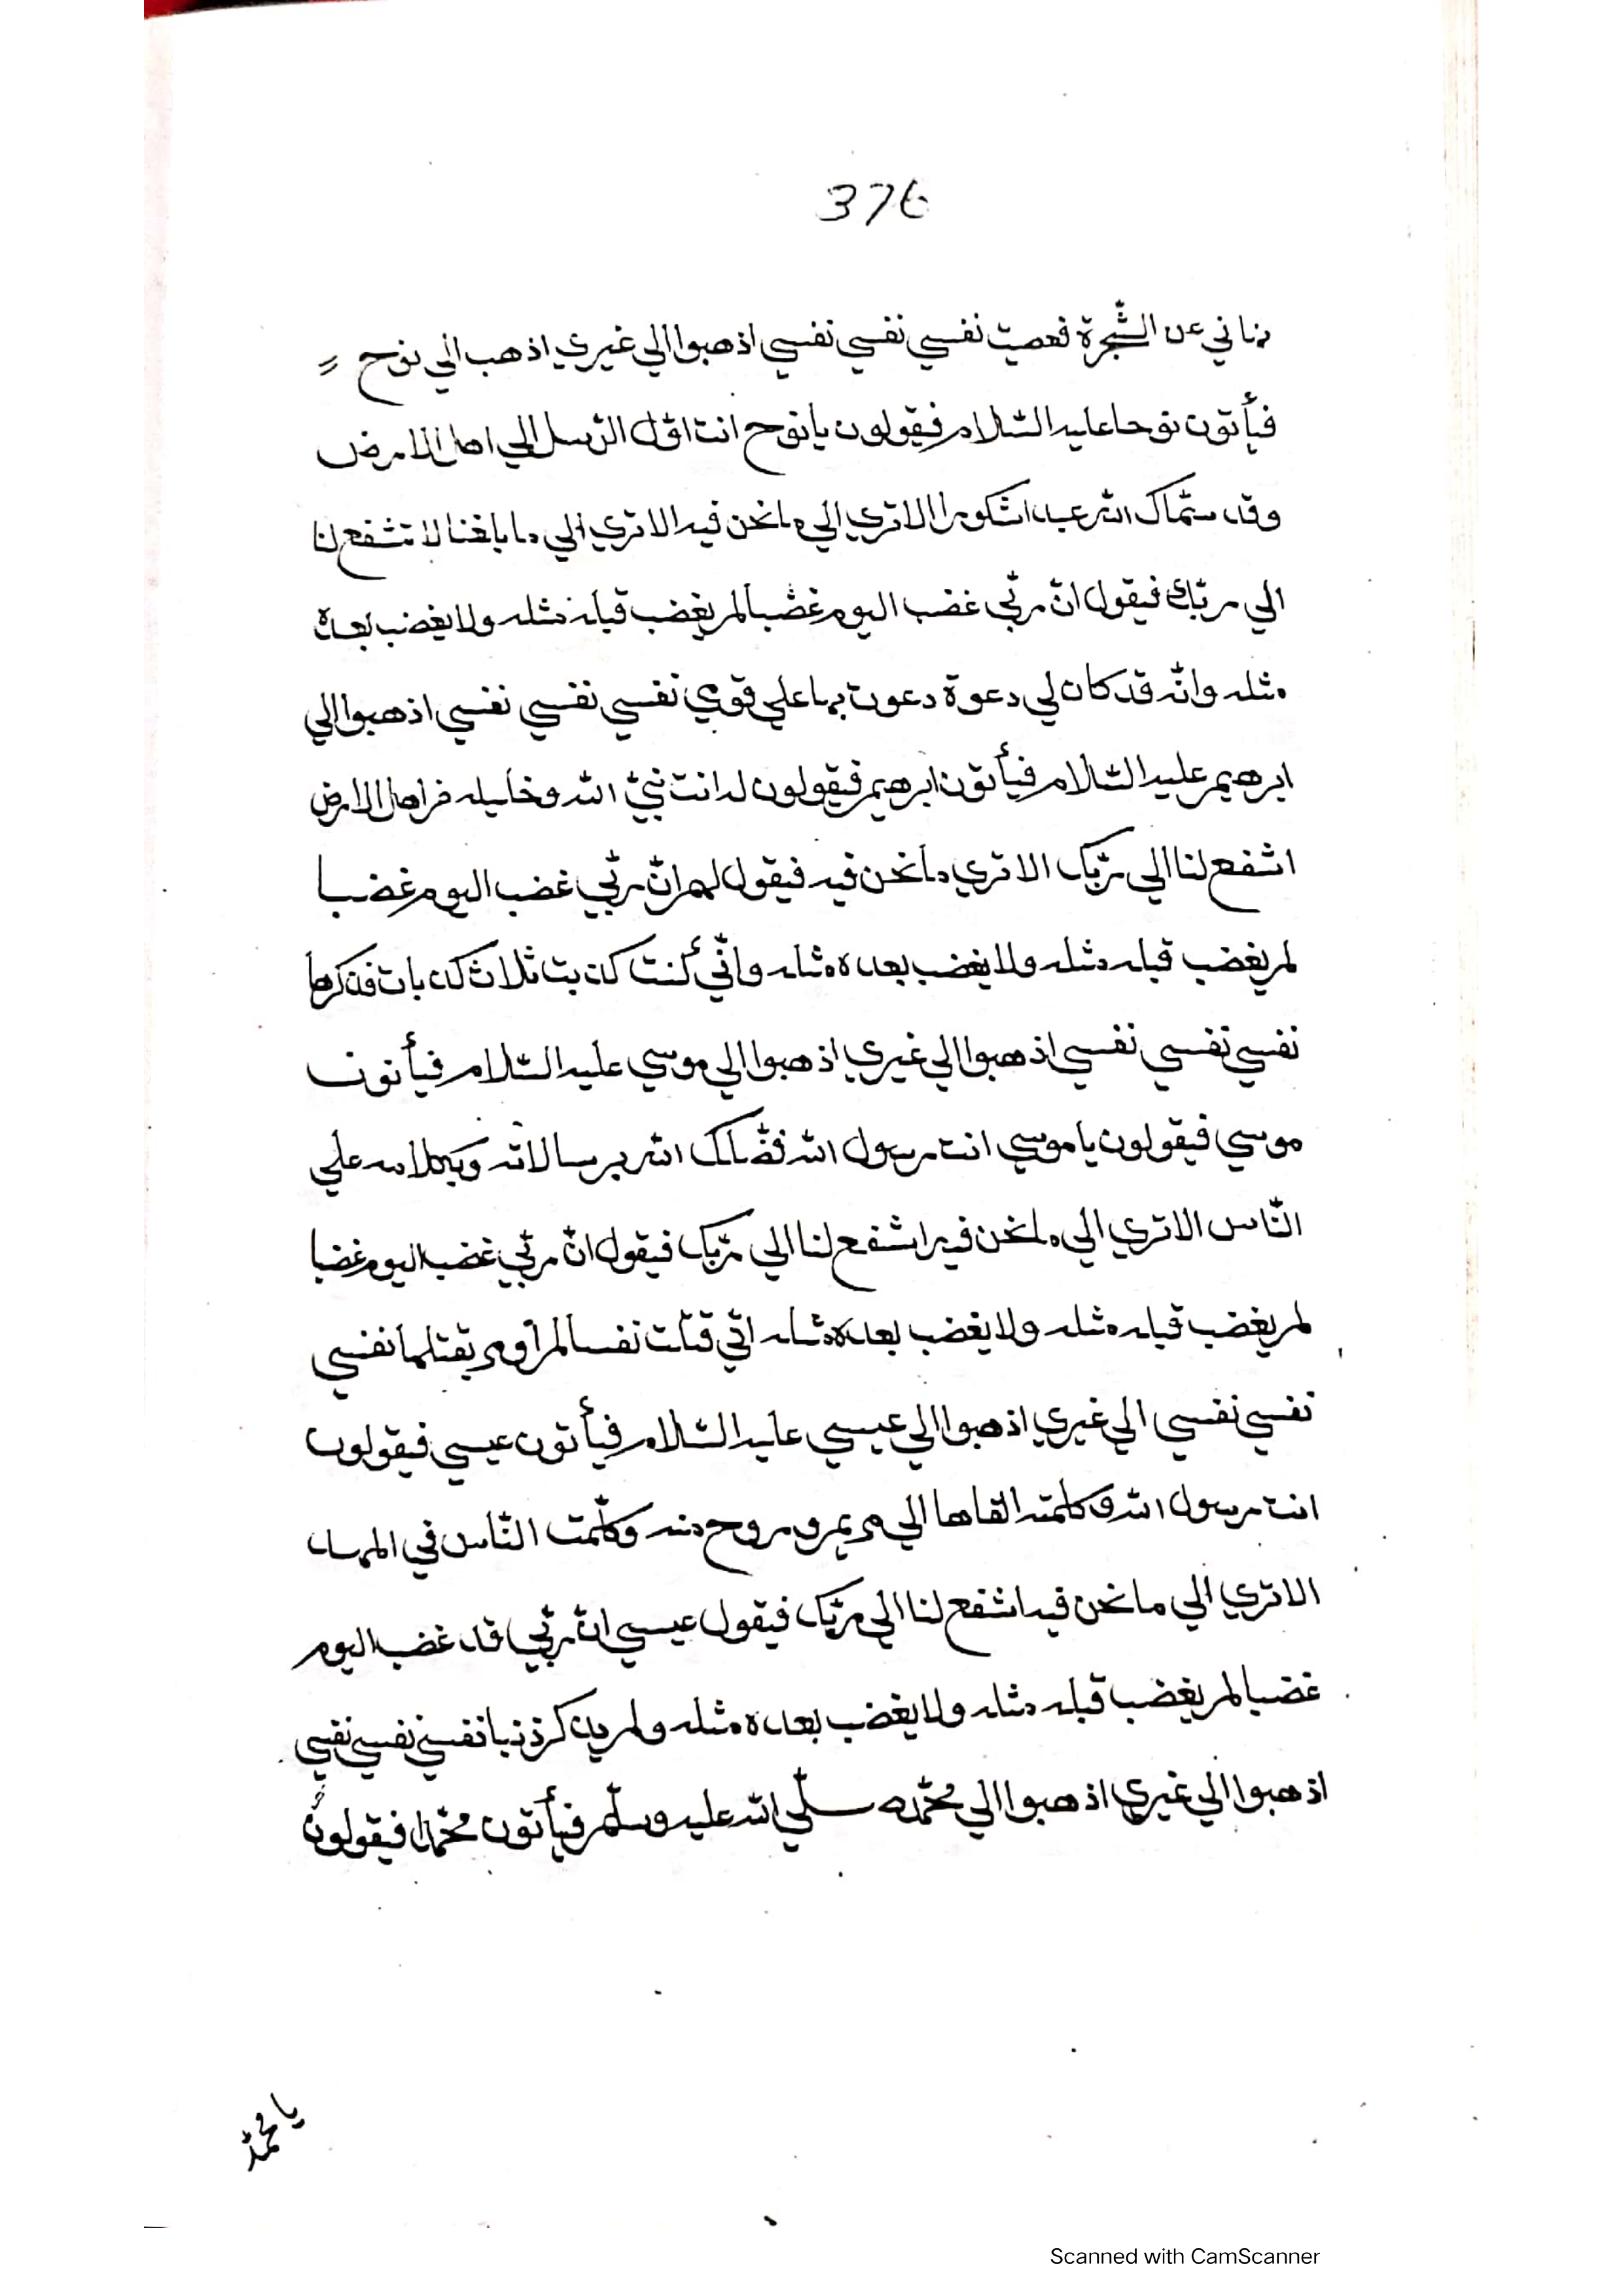 376
نهاني عن الشّجرة فعصيت نفسي نفسي نفسي اذهبوا الي غيري اذهب الي نوح
فيأتون نوحا عليه السّلام فيقولون يا نوح انت اوّل الرّسل الي اهل الارض
وقد سمّاك الله عبدا شكورا الا تري الي ما نحن فيه الا تري الي ما بلغنا لا تشفع لنا
الي ربّك فيقول انّ ربّي غضب اليوم غضبا لم يغضب قبله مثله ولا يغضب بعده
مثله وانّه قد كان لي دعوة دعوت بها علي قومي نفسي نفسي نفسي اذهبوا الي
ابرهيم عليه السّلام فيأتون ابرهيم فيقولون له انت نبيّ الله وخليله من اهل الارض
اشفع لنا الي ربّك الا تري ما نحن فيه فيقول لهم انّ ربّي غضب اليوم غضبا
لم يغضب قبله مثله ولا يغضب بعده مثله وانّي كنت كذبت ثلاث كذبات فذكرها
نفسي نفسي نفسي اذهبوا الي غيري اذهبوا الي موسي عليه السّلام فيأتون
موسي فيقولون يا موسي انت رسول الله فضّلك الله برسالاته وبكلامه علي
النّاس الا تري الي ما نحن فيه اشفع لنا الي ربّك فيقول انّ ربّي غضب اليوم غضبا
لم يغضب قبله مثله ولا يغضب بعده مثله انّي قتلت نفسا لم أومر بقتلها نفسي
نفسي نفسي الي غيري اذهبوا الي عيسي عليه السّلام فيأتون عيسي فيقولون
انت رسول الله وكلمته القاها الي مريم وروح منه وكلّمت النّاس في المهد
الا تري الي ما نحن فيه اشفع لنا الي ربّك فيقول عيسي انّ ربّي قد غضب اليوم
غضبا لم يغضب قبله مثله ولا يغضب بعده مثله ولم يذكر ذنبا نفسي نفسي نفسي
اذهبوا الي غيري اذهبوا الي محمّد صلّي الله عليه وسلّم فيأتون محمّدا فيقولون
يا محمّد
Scanned with CamScanner